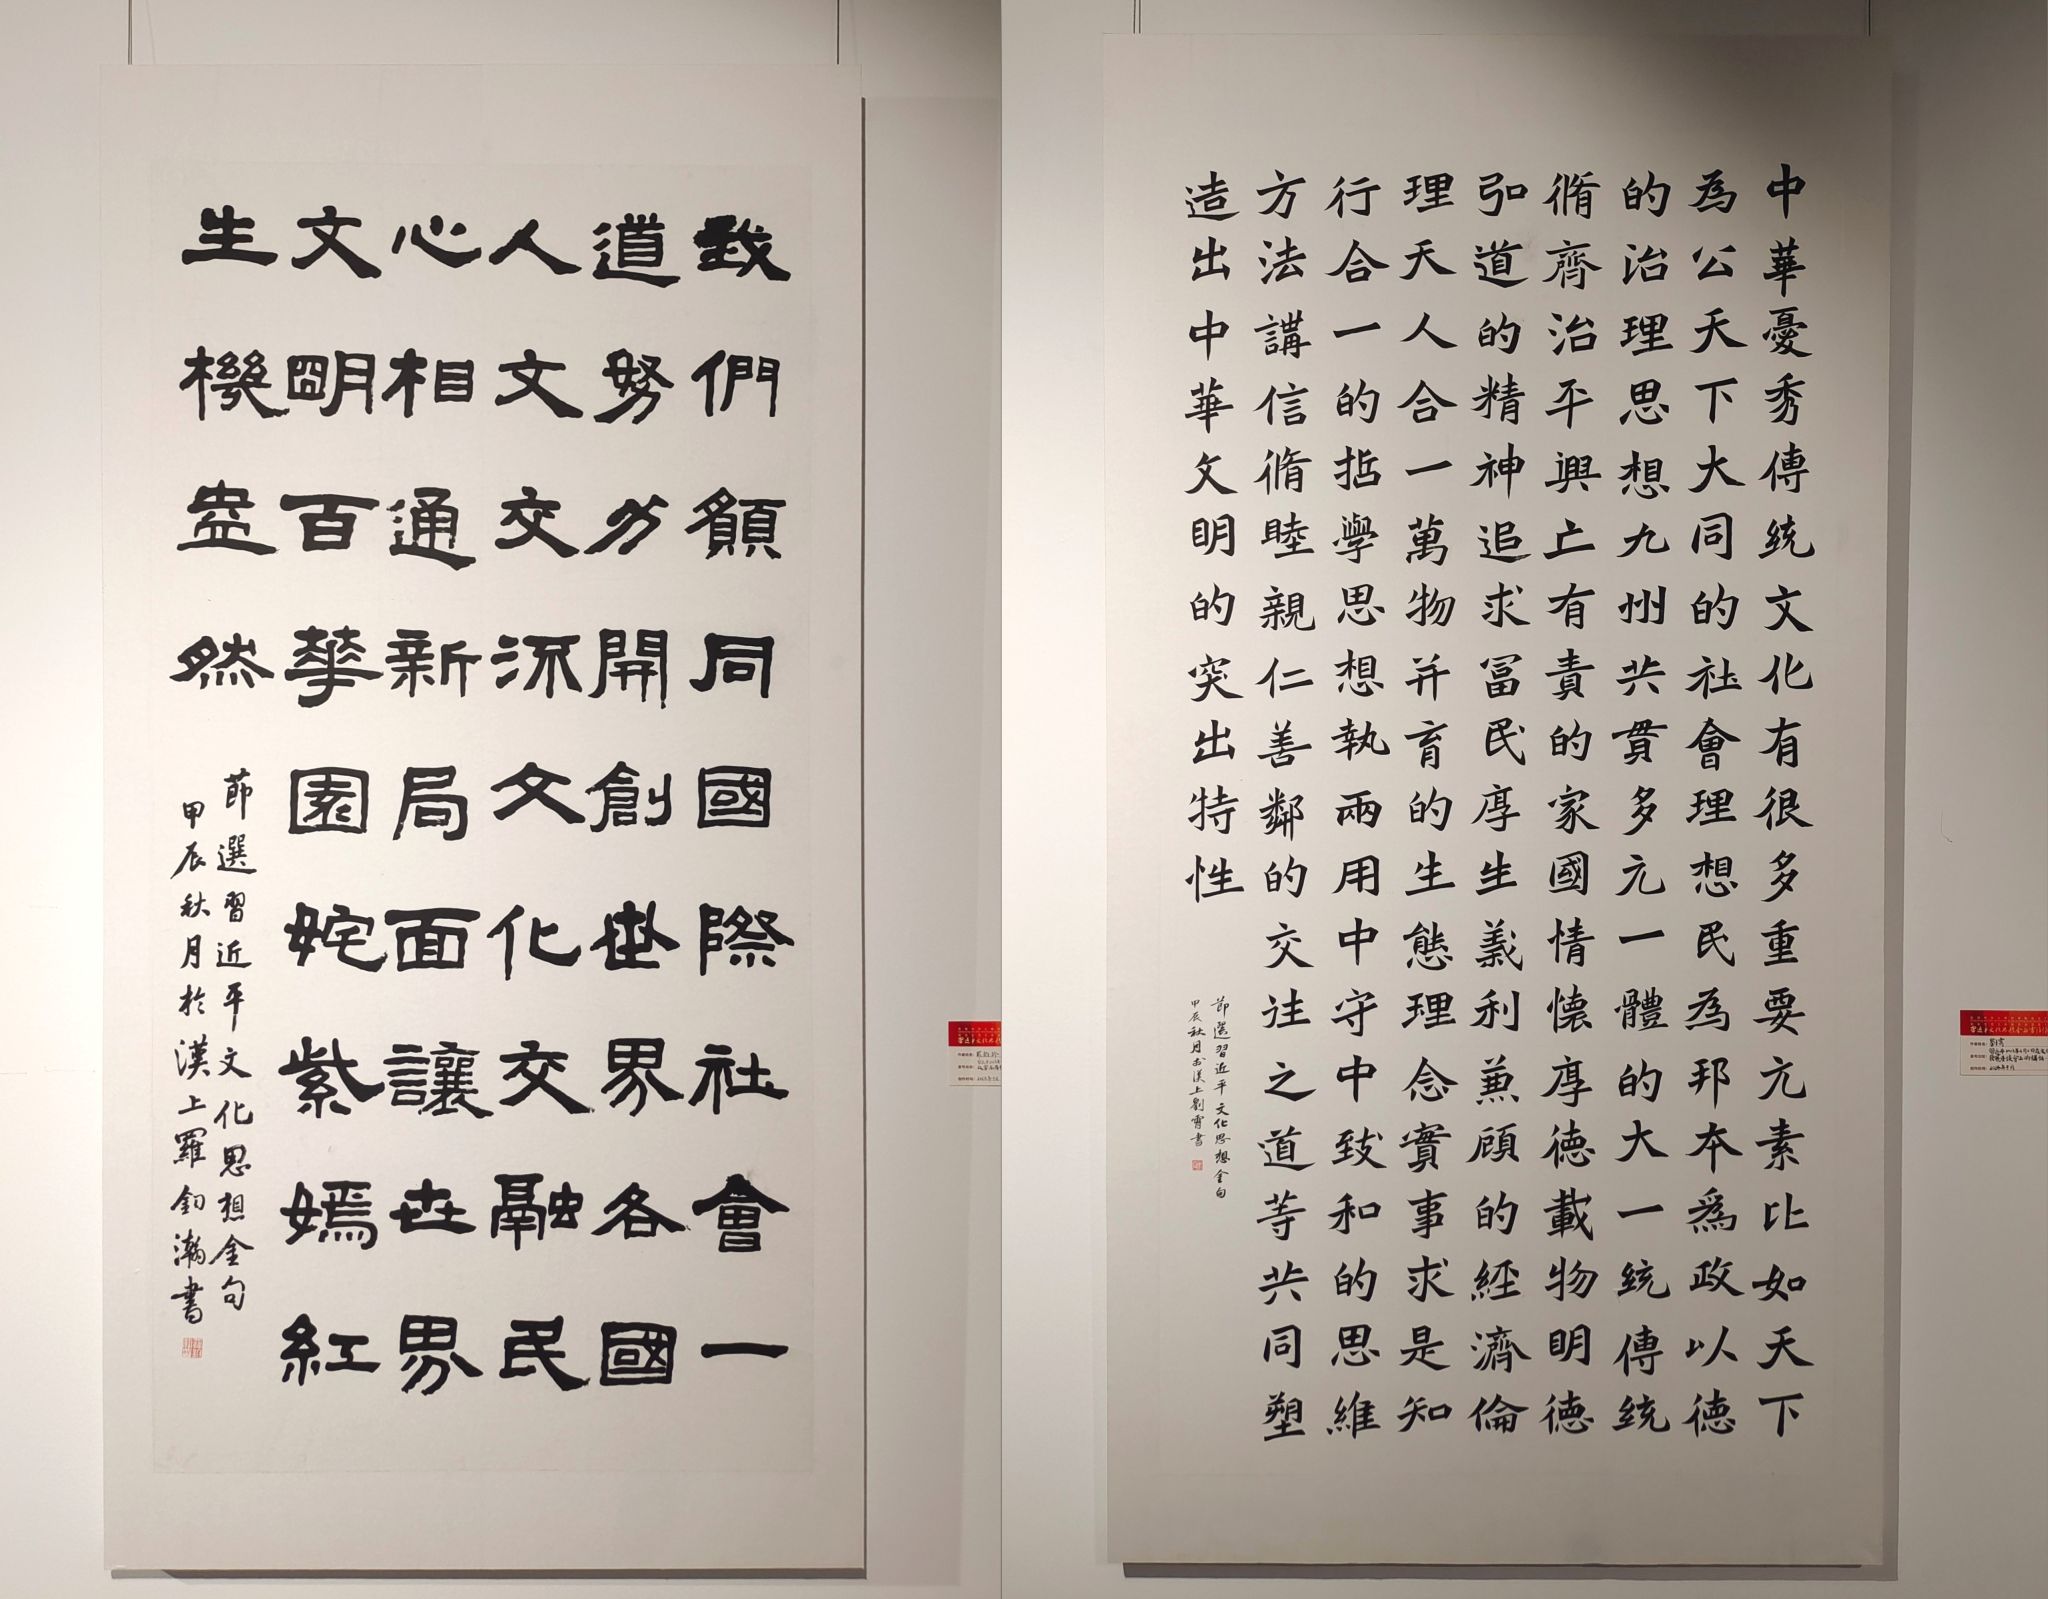 我們願同國際社會一
道努力開創世界各國
人文交流文化交融民
心相通新局面讓世界
文明百華園姹紫嫣紅
生機盎然
節選習近平文化思想金句
甲辰秋月於漢上羅鈞瀚書
中華憂秀傳統文化有很多重要元素比如天下
為公天下大同的社會理想民為邦本爲政以德
的治理思想九州共貫多元一體的大一統傳統
脩齊治平興亡有責的家國情懷厚德載物明德
弘道的精神追求富民厚生義利兼顧的經濟倫
理天人合一萬物并育的生態理念實事求是知
行合一的哲學思想執兩用中守中致和的思維
方法講信脩睦親仁善鄰的交往之道等共同塑
造出中華文明的突出特性
節選習近平文化思想金句
甲辰秋月於漢上劉霄書